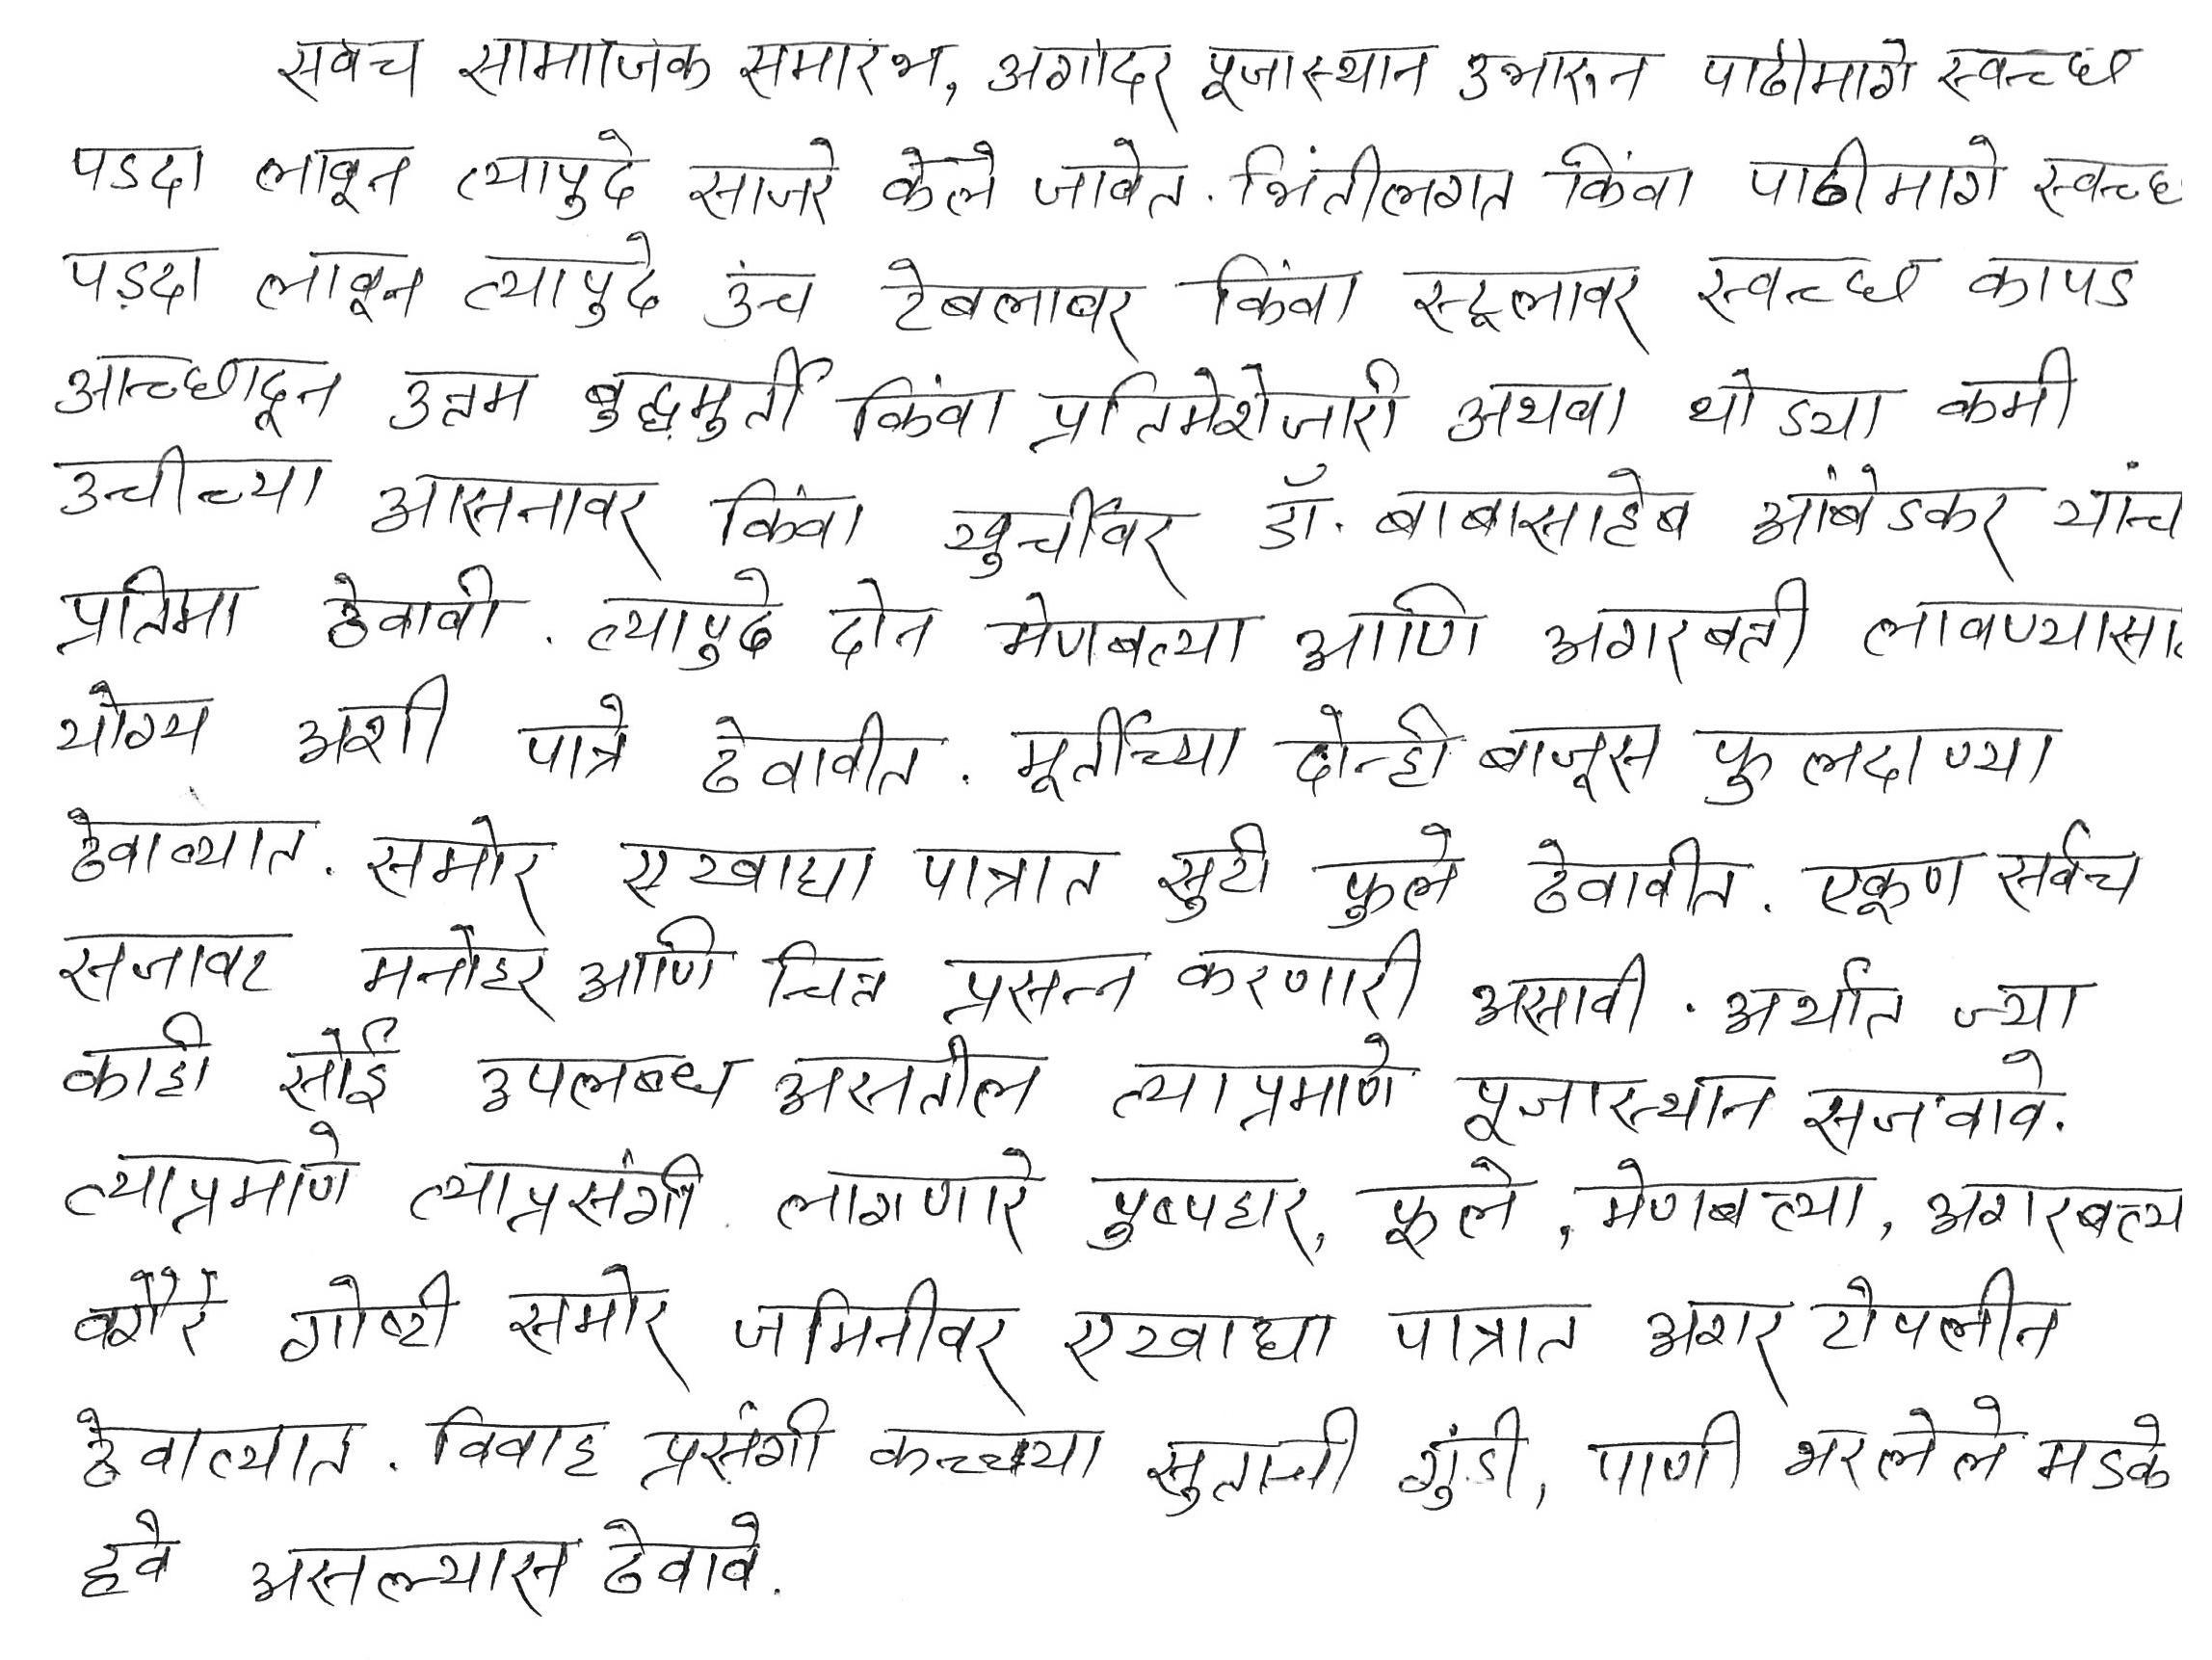 सर्वच सामाजिक समारंभ, अगोदर पूजास्थान उभारून पाठीमागे स्वच्छ
पडदा लावून त्यापुढे साजरे केले जावेत. भिंतीलगत किंवा पाठीमागे स्वच्छ
पडदा लावून त्यापुढे उंच टेबलावर किंवा स्टूलावर स्वच्छ कापड
आच्छादून उत्तम बुद्धमुर्ती किंवा प्रतिमेशेजारी अथवा थोड्या कमी
उंचीच्या आसनावर किंवा खुर्चीवर डॉ. बाबासाहेब आंबेडकर यांच
प्रतिमा ठेवावी. त्यापुढे दोन मेणबत्या आणि अगरबत्ती लावण्यासा
योग्य अशी पात्रे ठेवावीत. मूर्तीच्या दोन्ही बाजूस फुलदाण्या
ठेवाव्यात. समोर एखाद्या पात्रात सुटी फुले ठेवावीत. एकूण सर्वच
सजावट मनोहर आणि चित्त प्रसन्न करणारी असावी. अर्थात ज्या
काही सोई उपलब्ध असतील त्याप्रमाणे पूजास्थान सजवावे.
त्याप्रमाणे त्याप्रसंगी लागणारे पुष्पहार, फूले, मेणबत्या, अगरबत्त्य
वगैरे गोष्टी समोर जमिनीवर एखाद्या पात्रात अगर टोपलीन
ठेवाव्यात. विवाह प्रसंगी कच्च्या सुताची गुंडी, पाणी भरलेले मडके
हवे असल्यास ठेवावे.